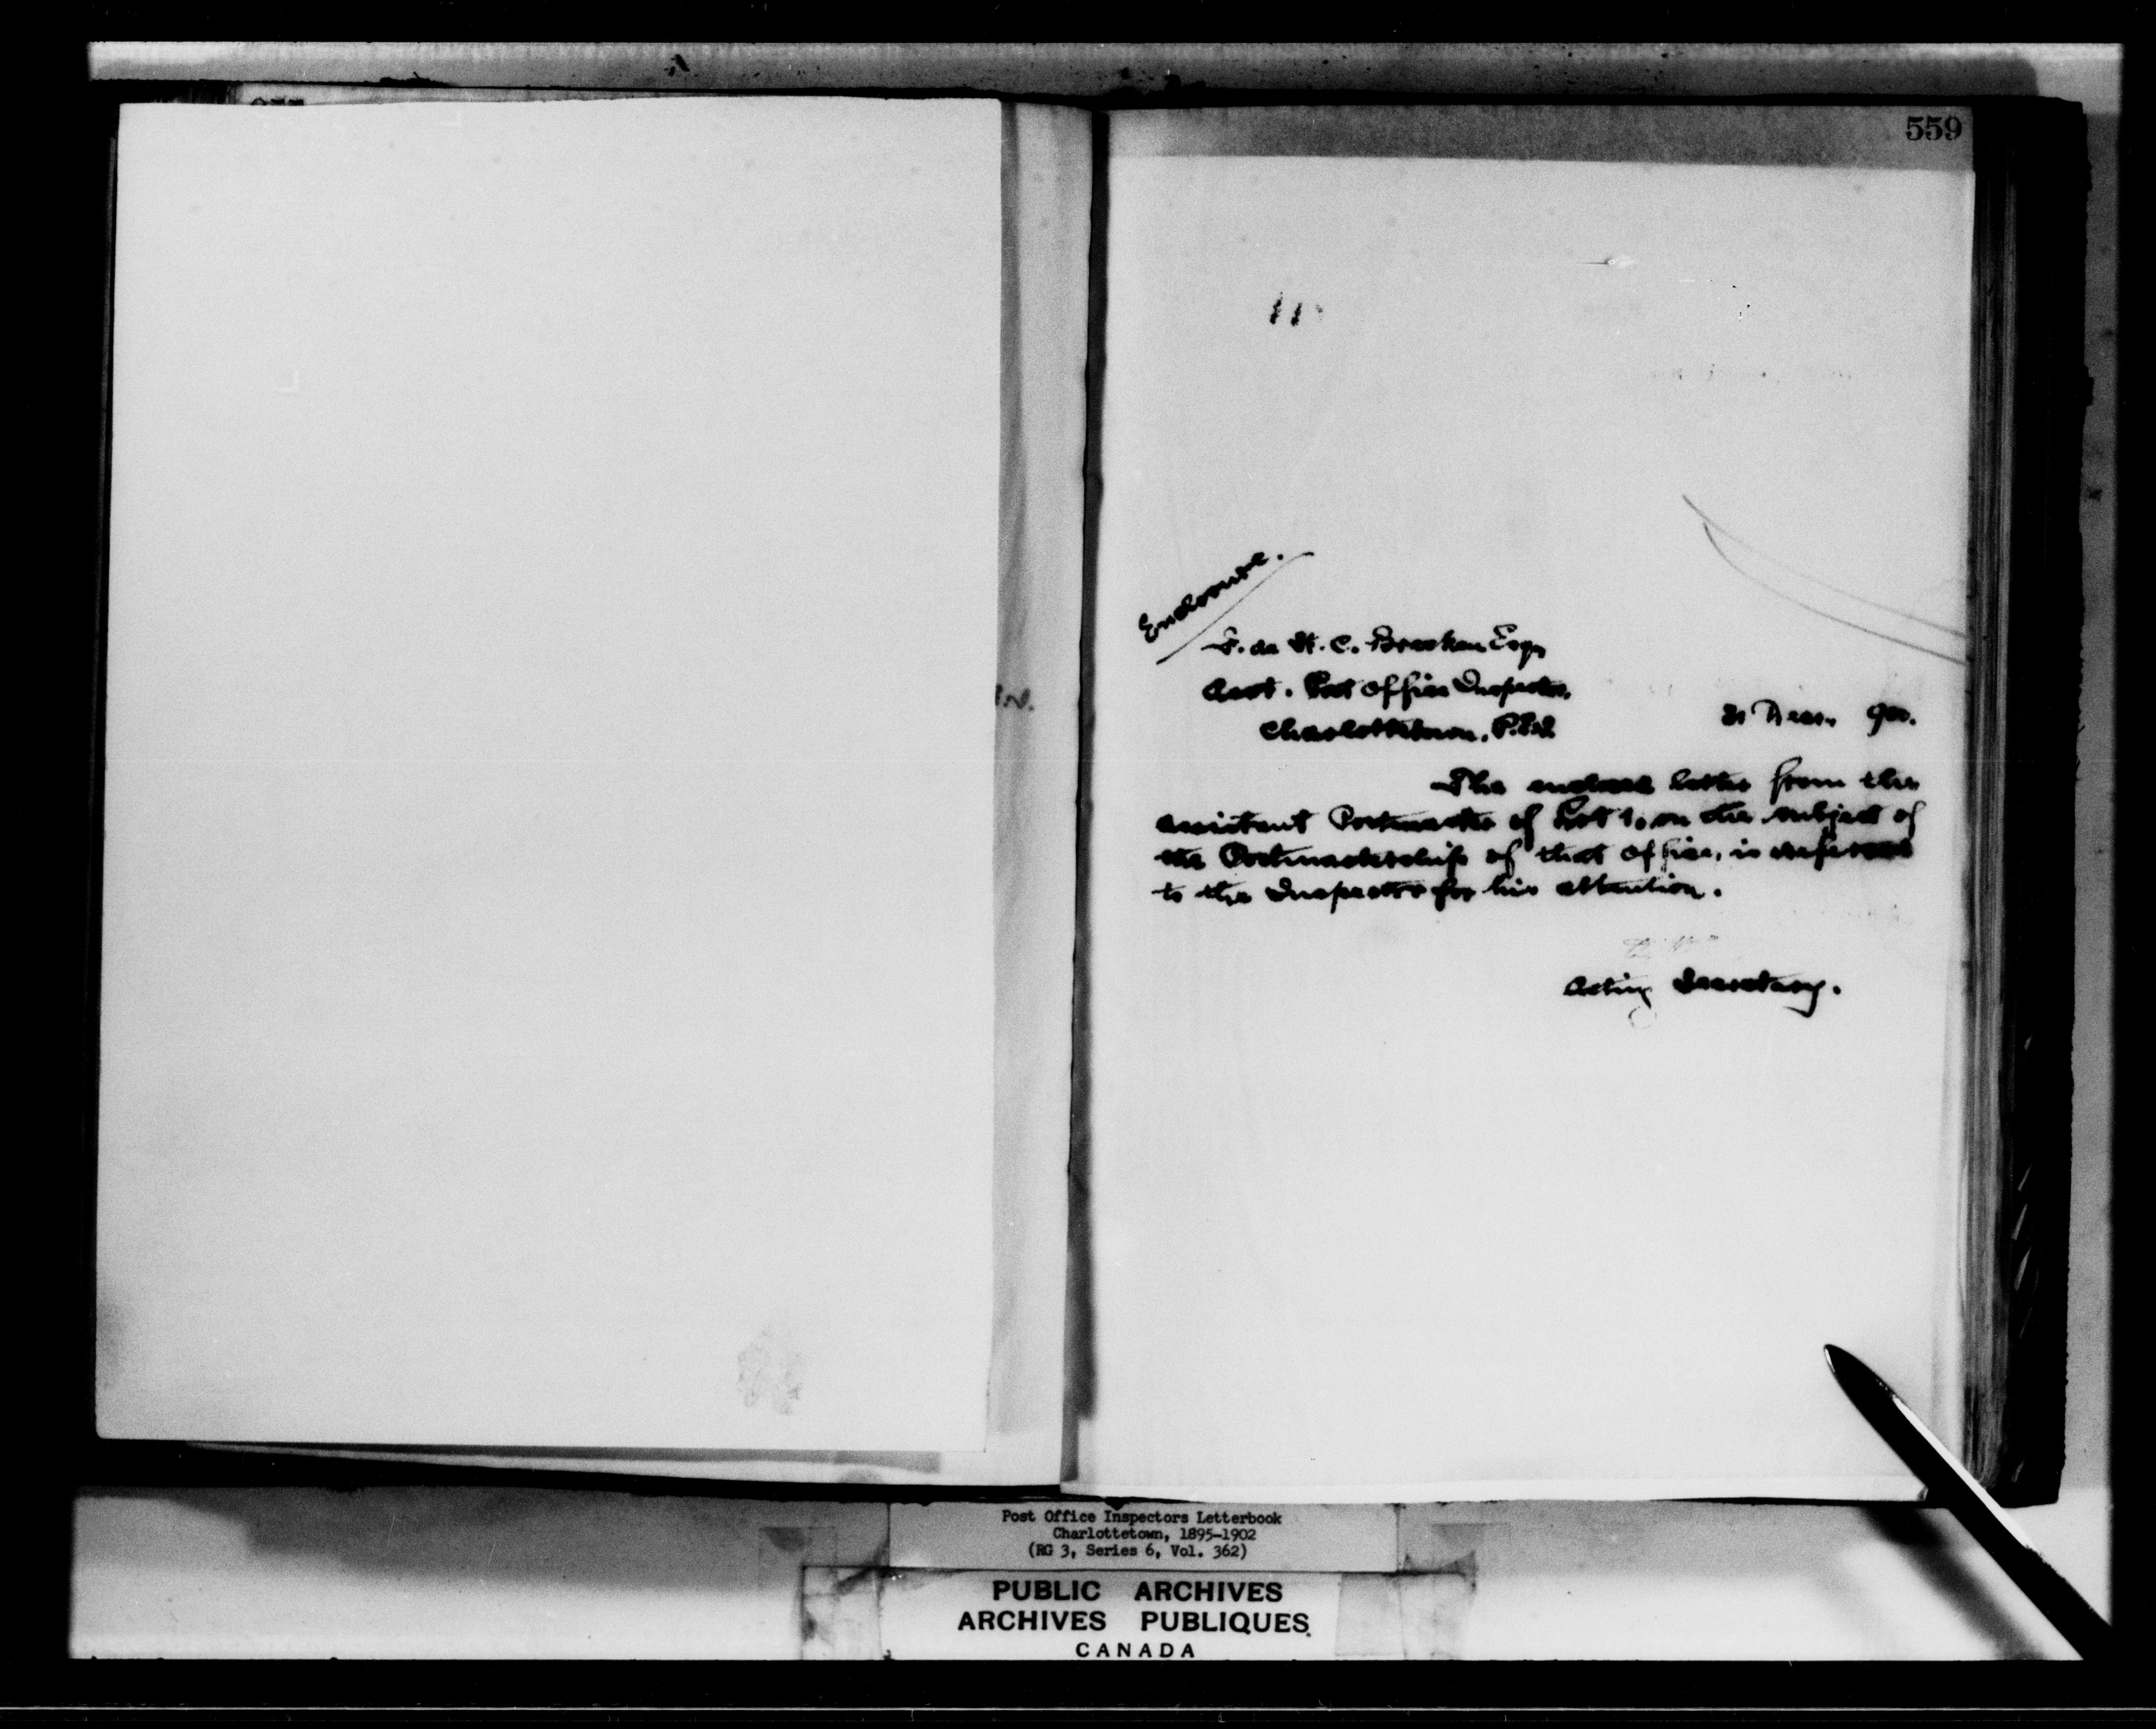 559
Enclosure.
F. de St. C. Brecken Esq
Asst. Post Office Inspector,
Charlottetown, P.E.I.
31 Decr. 900.
The enclosed letter from the
assistant Postmaster of Lot 1, on the subject of
the Postmastership of that office, is referred
to the Inspector for his attention.
Acting Secretary.
Post Office Inspectors Letterbook
Charlottetown, 1895-1902
(RG 3, Series 6, Vol. 362)
PUBLIC ARCHIVES
ARCHIVES PUBLIQUES
CANADA